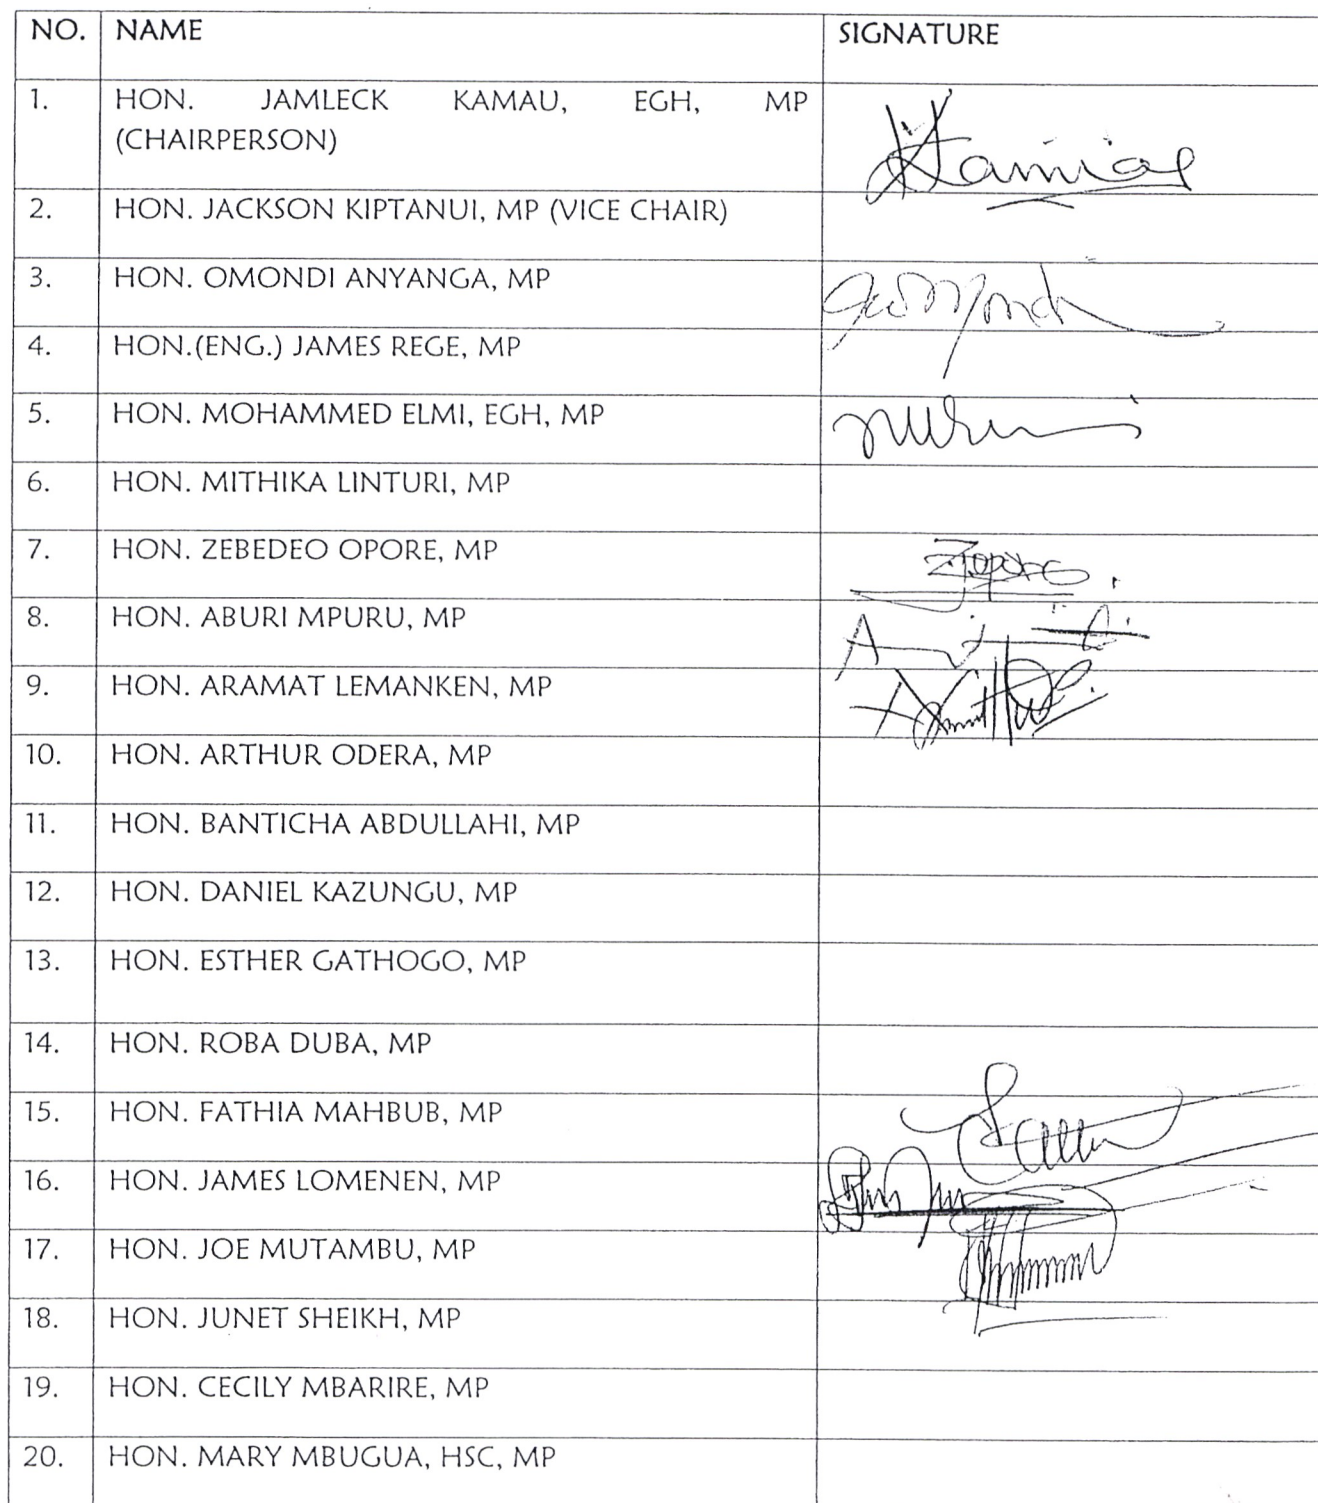 NO. NAME SIGNATURE
1. HON. JAMLECK KAMAU, EGH, MP
(CHAIRPERSON)
Kamau
2. HON. JACKSON KIPTANUI, MP (VICE CHAIR)
3. HON. OMONDI ANYANGA, MP
4. HON.(ENG.) JAMES REGE, MP
5. HON. MOHAMMED ELMI, EGH, MP
6. HON. MITHIKA LINTURI, MP
7. HON. ZEBEDEO OPORE, MP
8. HON. ABURI MPURU, MP
9. HON. ARAMAT LEMANKEN, MP
10. HON. ARTHUR ODERA, MP
11. HON. BANTICHA ABDULLAHI, MP
12. HON. DANIEL KAZUNGU, MP
13. HON. ESTHER GATHOGO, MP
14. HON. ROBA DUBA, MP
15. HON. FATHIA MAHBUB, MP
16. HON. JAMES LOMENEN, MP
17. HON. JOE MUTAMBU, MP
18. HON. JUNET SHEIKH, MP
19. HON. CECILY MBARIRE, MP
20. HON. MARY MBUGUA, HSC, MP